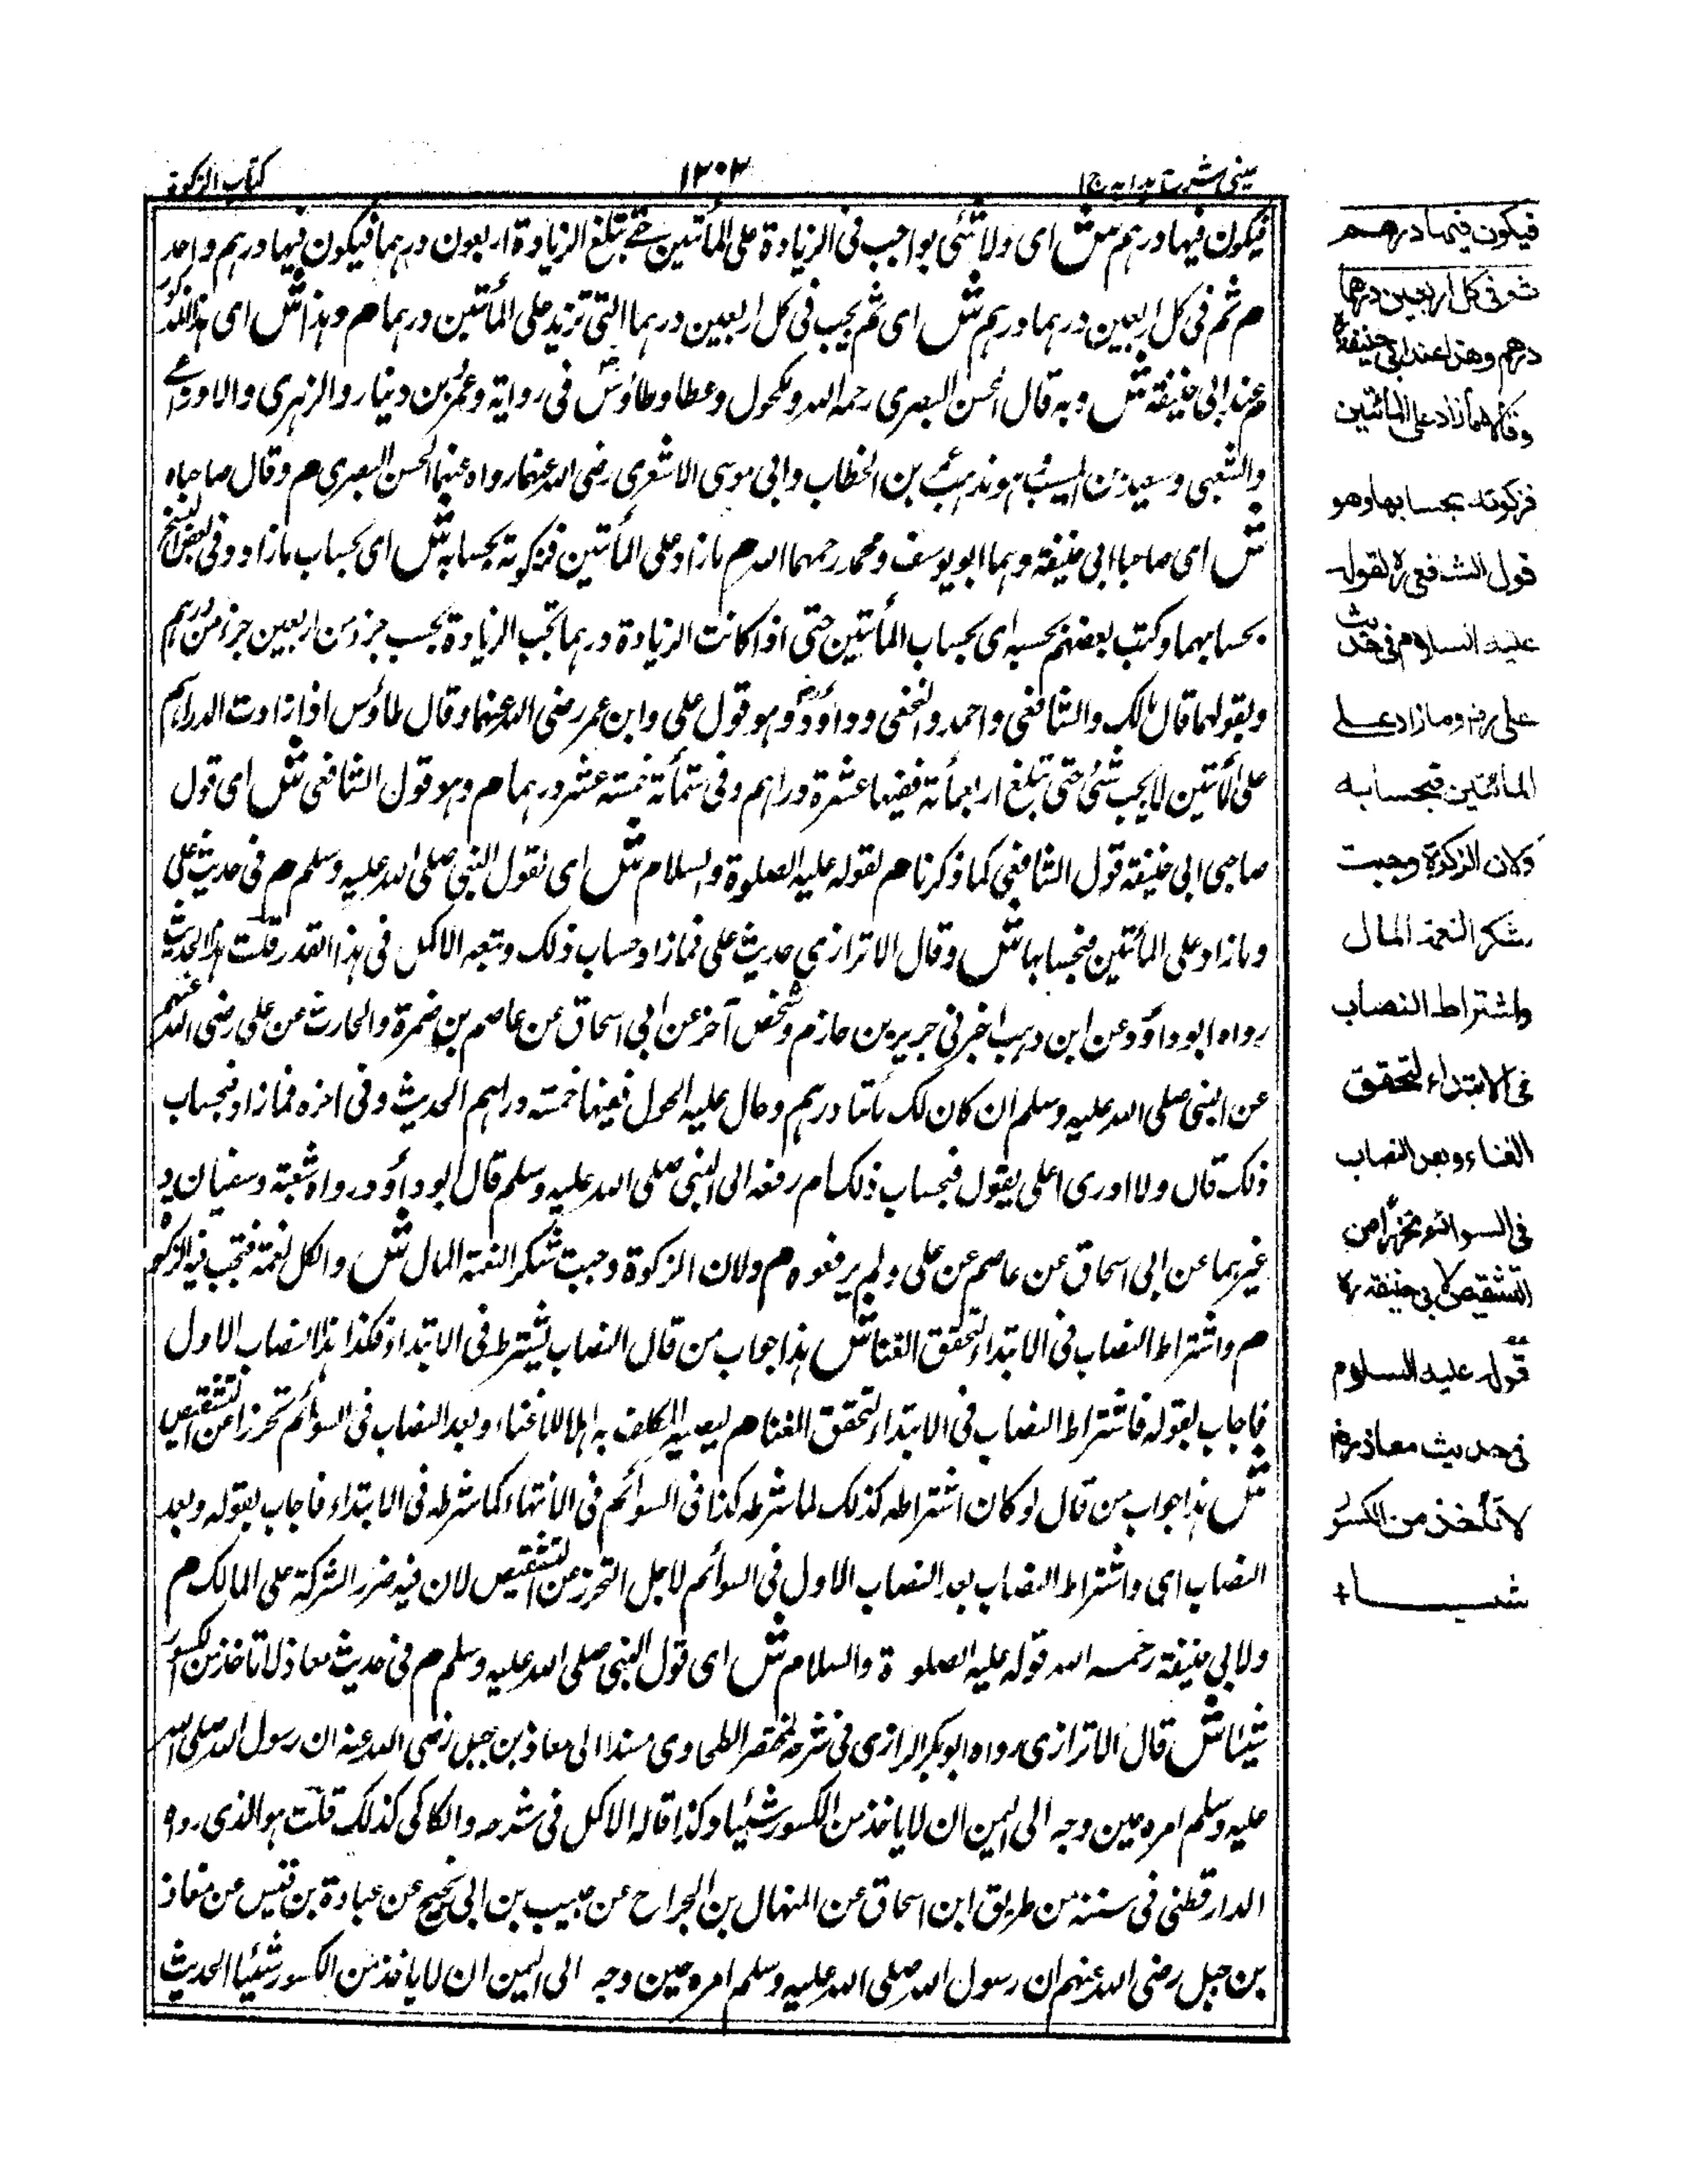 عینی شرح ہدایہ ج ۱
۱۳۰۲
کتاب الزکوة
فیکون فیہا درہم ش ای ولا شئی بواجب فی الزیادة علی المأتین حتے تبلغ الزیادة اربعون درہما فیکون فیہا درہم واحد
م ثم فی کل اربعین درہما درہم ش ای ثم یجب فی کل اربعین درہما التی تزید علی المأتین درہما م وہذا ش ای ہذا المذکور
م عند ابی حنیفة ش وبه قال الحسن البصری رحمه الله ومکحول وعطا وطاؤس فی روایة وعمر بن دینار والزہری والاوزاعے
والشعبی وسعید بن المسیب وہو مذہب عمر بن الخطاب وابی موسی الاشعری رضی الله عنہما رواه عنہما الحسن البصری م وقال صاحباه
ش ای صاحبا ابی حنیفة وہما ابو یوسف ومحمد رحمہما الله م مازاد علی المأتین فزکوته بحسابه ش ای بحساب مازاد وفی بعض النسخ
بحسابہما وکتب بعضہم بحسبه ای بحساب المأتین حتی اذا کانت الزیادة درہما تجب الزیادة بحسب جزء من اربعین جزء من درہم
وبقولہما قال مالک والشافعی واحمد والنخعی وداؤد وہو قول علی وابن عمر رضی الله عنہما وقال طاؤس اذا زادت الدراہم
علی المأتین لا یجب شئ حتی تبلغ اربعمأته ففیہا عشرة دراہم وفی ستمأته خمسته عشر درہما م وہو قول الشافعی ش ای قول
صاحبی ابی حنیفة قول الشافعی کما ذکرنا م لقوله علیه الصلوة والسلام ش ای لقول النبی صلی الله علیه وسلم م فی حدیث علی
ومازاد علی المأتین فبحسابہا ش وقال الاترازی حدیث علی فما زاد فحساب ذلک وتبعه الاکمل فی ہذا القدر قلت ہذا الحدیث
رواه ابو داؤد عن ابن وہب اخبرنی جریر بن حازم وشخص آخر عن ابی اسحاق عن عاصم بن ضمرة والحارث عن علی رضی الله عنہم
عن النبی صلی الله علیه وسلم ان کان لک مائتا درہم وحال علیه الحول ففیہا خمسته دراہم الحدیث وفی اخره فما زاد فبحساب
ذلک قال ولا ادری اعلی یقول فبحساب ذلک ام رفعه الی النبی صلی الله علیه وسلم قال ابو داؤد رواه شعبة وسفیان و
غیرہما عن ابی اسحاق عن عاصم عن علی ولم یرفعوه م ولان الزکوة وجبت شکر النعمة المال ش والکل نعمة فتجب فیه الزکوة
م واشتراط النصاب فی الابتداء لتحقق الغنا ش ہذا جواب من قال النصاب یشترط فی الابتداء فکذا ہذا النصاب الاول
فاجاب بقوله فاشتراط النصاب فی الابتداء لتحقق الغنا م لیصیر المکلف به اہلا للاغناء وبعد النصاب فی السوائم تحرزا من التشقیص
ش ہذا جواب من قال لو کان اشتراطه کذلک لما شرطه کذا فی السوائم فی الانتہاء کما شرطه فی الابتداء فاجاب بقوله وبعد
النصاب ای واشتراط النصاب بعد النصاب الاول فی السوائم لاجل التحرز من التشقیص لان فیه ضرر الشرکة علی المالک م
ولابی حنیفة رحمه الله قوله علیه الصلوة والسلام ش ای قول النبی صلی الله علیه وسلم م فی حدیث معاذ لا تاخذ من الکسور
شیئا ش قال الاترازی رواه ابو بکر الرازی فی شرحه لمختصر الطحاوی مسندا الی معاذ بن جبل رضی الله عنه ان رسول الله صلی الله
علیه وسلم امره حین وجه الی الیمن ان لا یاخذ من الکسور شیئا وکذا قاله الاکمل فی شرحه والکاکی کذلک قلت ہو الذی رواه
الدارقطنی فی سننه من طریق ابن اسحاق عن المنہال بن الجراح عن حبیب بن ابی نجیح عن عبادة بن قیس عن معاذ
بن جبل رضی الله عنہم ان رسول الله صلی الله علیه وسلم امره حین وجه الی الیمن ان لا یاخذ من الکسور شیئا الحدیث
فیکون فیها درهم
ثم فی کل اربعین درهما
درهم وهذا عند ابی حنیفة ره
وقالا ما زاد علی المائتین
فزکوته بحسابها وهو
قول الشافعی ره لقوله
علیه السلام فی حدیث
علی رض وما زاد علی
المائتین فبحسابه
ولان الزکوة وجبت
شکر النعمة المال
واشتراط النصاب
فی الابتداء لتحقق
الغناء وبعد النصاب
فی السوائم تحرزا من
التشقیص لابی حنیفة ره
قوله علیه السلام
فی حدیث معاذ رض
لا تأخذ من الکسور
شیئا